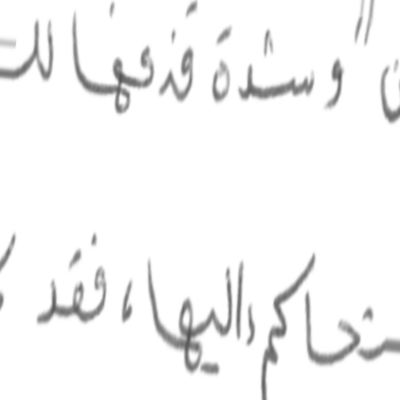 " وشدة قذفها لل
حاكم اليها، فقد